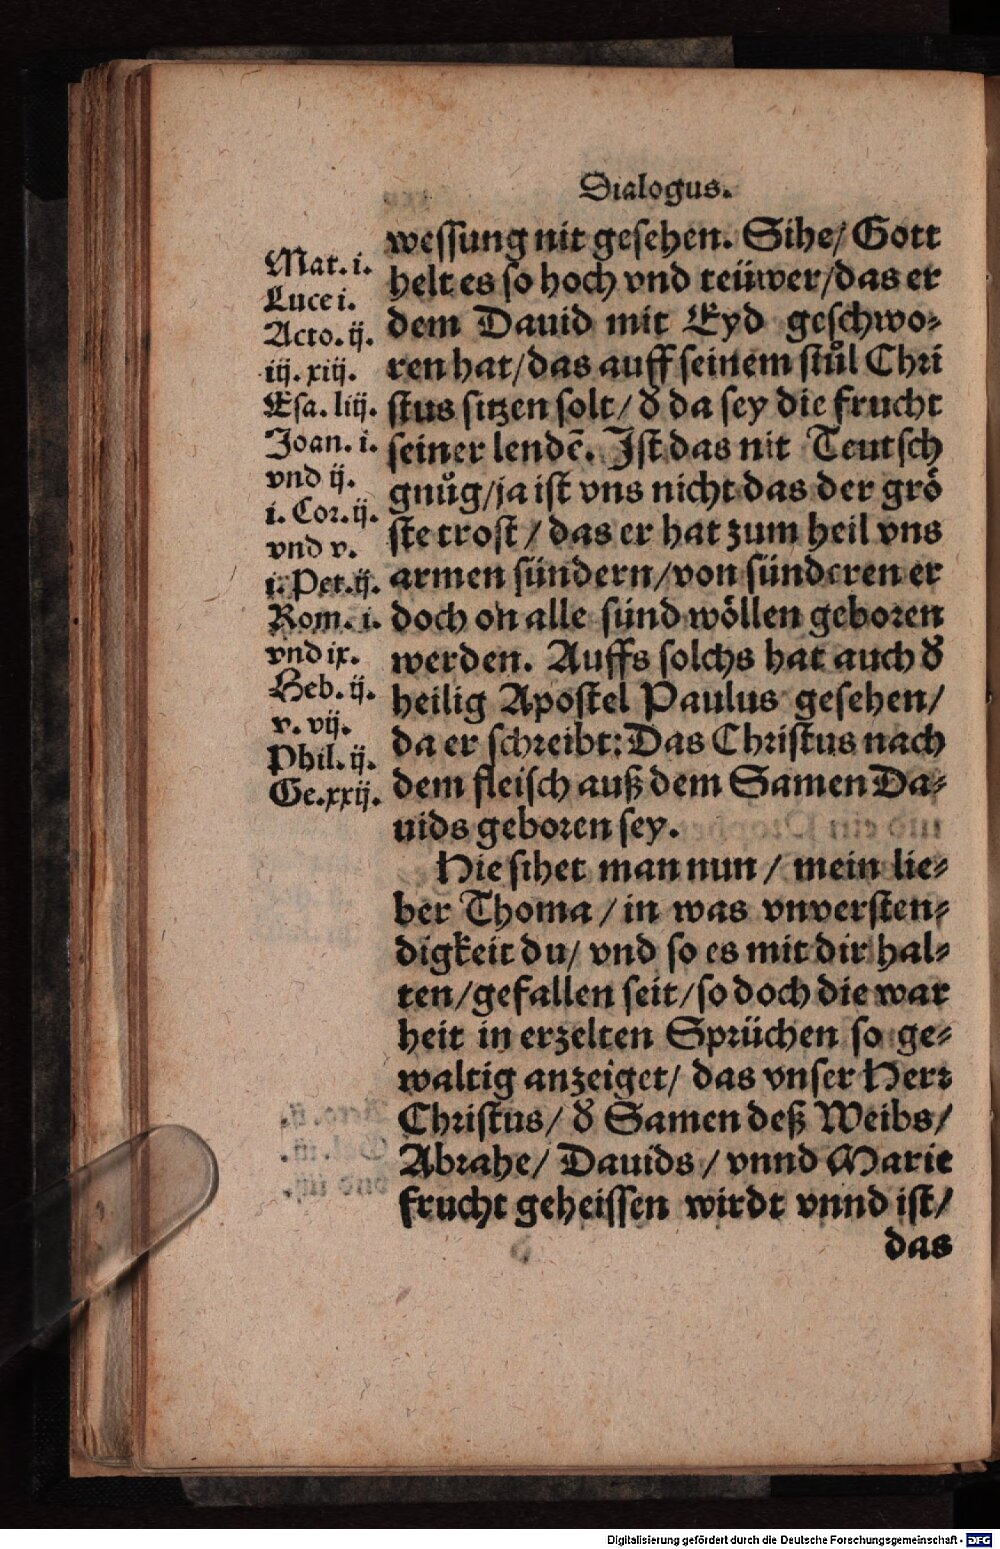 Dialogus.
wessung nit gesehen. Sihe/ Gott
helt es so hoch vnd teüwer/das er
dem Dauid mit Eyd geschwo-
ren hat/das auff seinem stůl Chri
stus sitzen solt/ d̕ da sey die frucht
seiner lendē. Ist das nit Teutsch
gnůg/ja ist vns nicht das der grö
ste trost/ das er hat zum heil vns
armen sündern/von sünderen er
doch on alle sünd wöllen geboren
werden. Auffs solchs hat auch d̕
heilig Apostel Paulus gesehen/
da er schreibt: Das Christus nach
dem fleisch auß dem Samen Da-
uids geboren sey.
Hie sihet man nun/ mein lie-
ber Thoma/ in was vnversten-
digkeit du/ vnd so es mit dir hal-
ten/gefallen seit/so doch die war
heit in erzelten Sprüchen so ge-
waltig anzeiget/ das vnser Herr
Christus/ d̕ Samen deß Weibs/
Abrahe/ Dauids/ vnnd Marie
frucht geheissen wirdt vnnd ist/
das
Mat. i.
Luce i.
Acto. ij.
iij. xiij.
Esa. liij.
Joan. i.
vnd ij.
i. Cor. ij.
vnd v.
i. Pet. ij.
Rom. i.
vnd ix.
Heb. ij.
v. vij.
Phil. ij.
Ge. xxij.
Digitalisierung gefördert durch die Deutsche Forschungsgemeinschaft - DFG